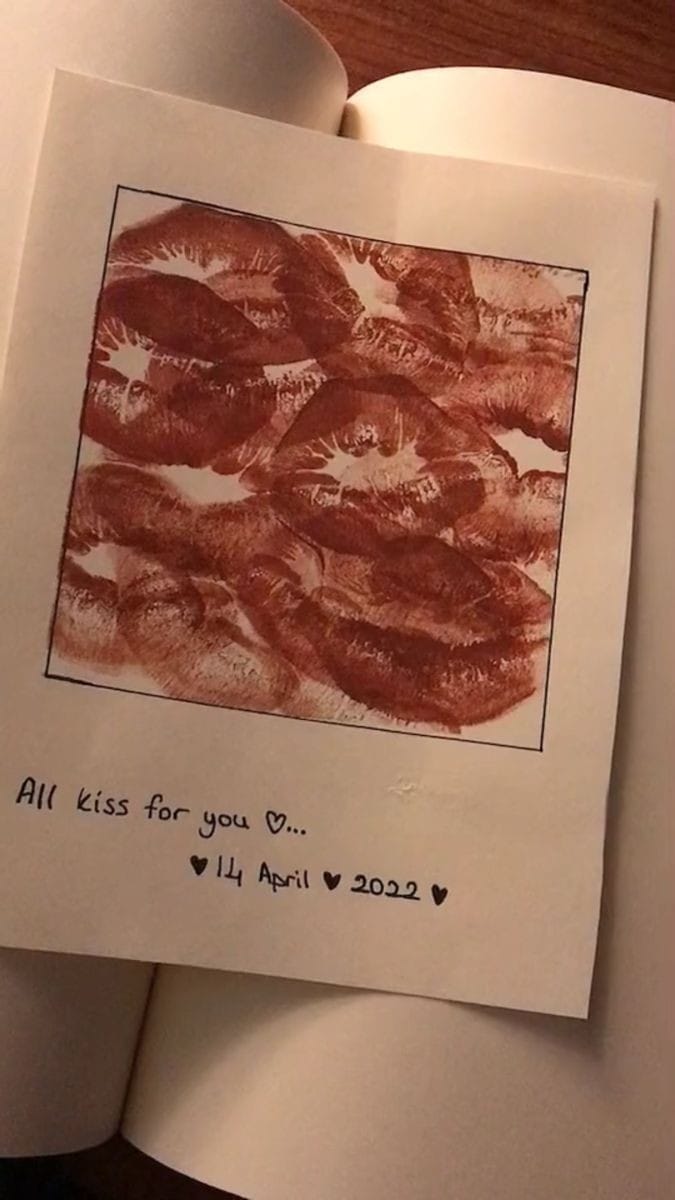 All kiss for you ♡...
♥ 14 April ♥ 2022 ♥